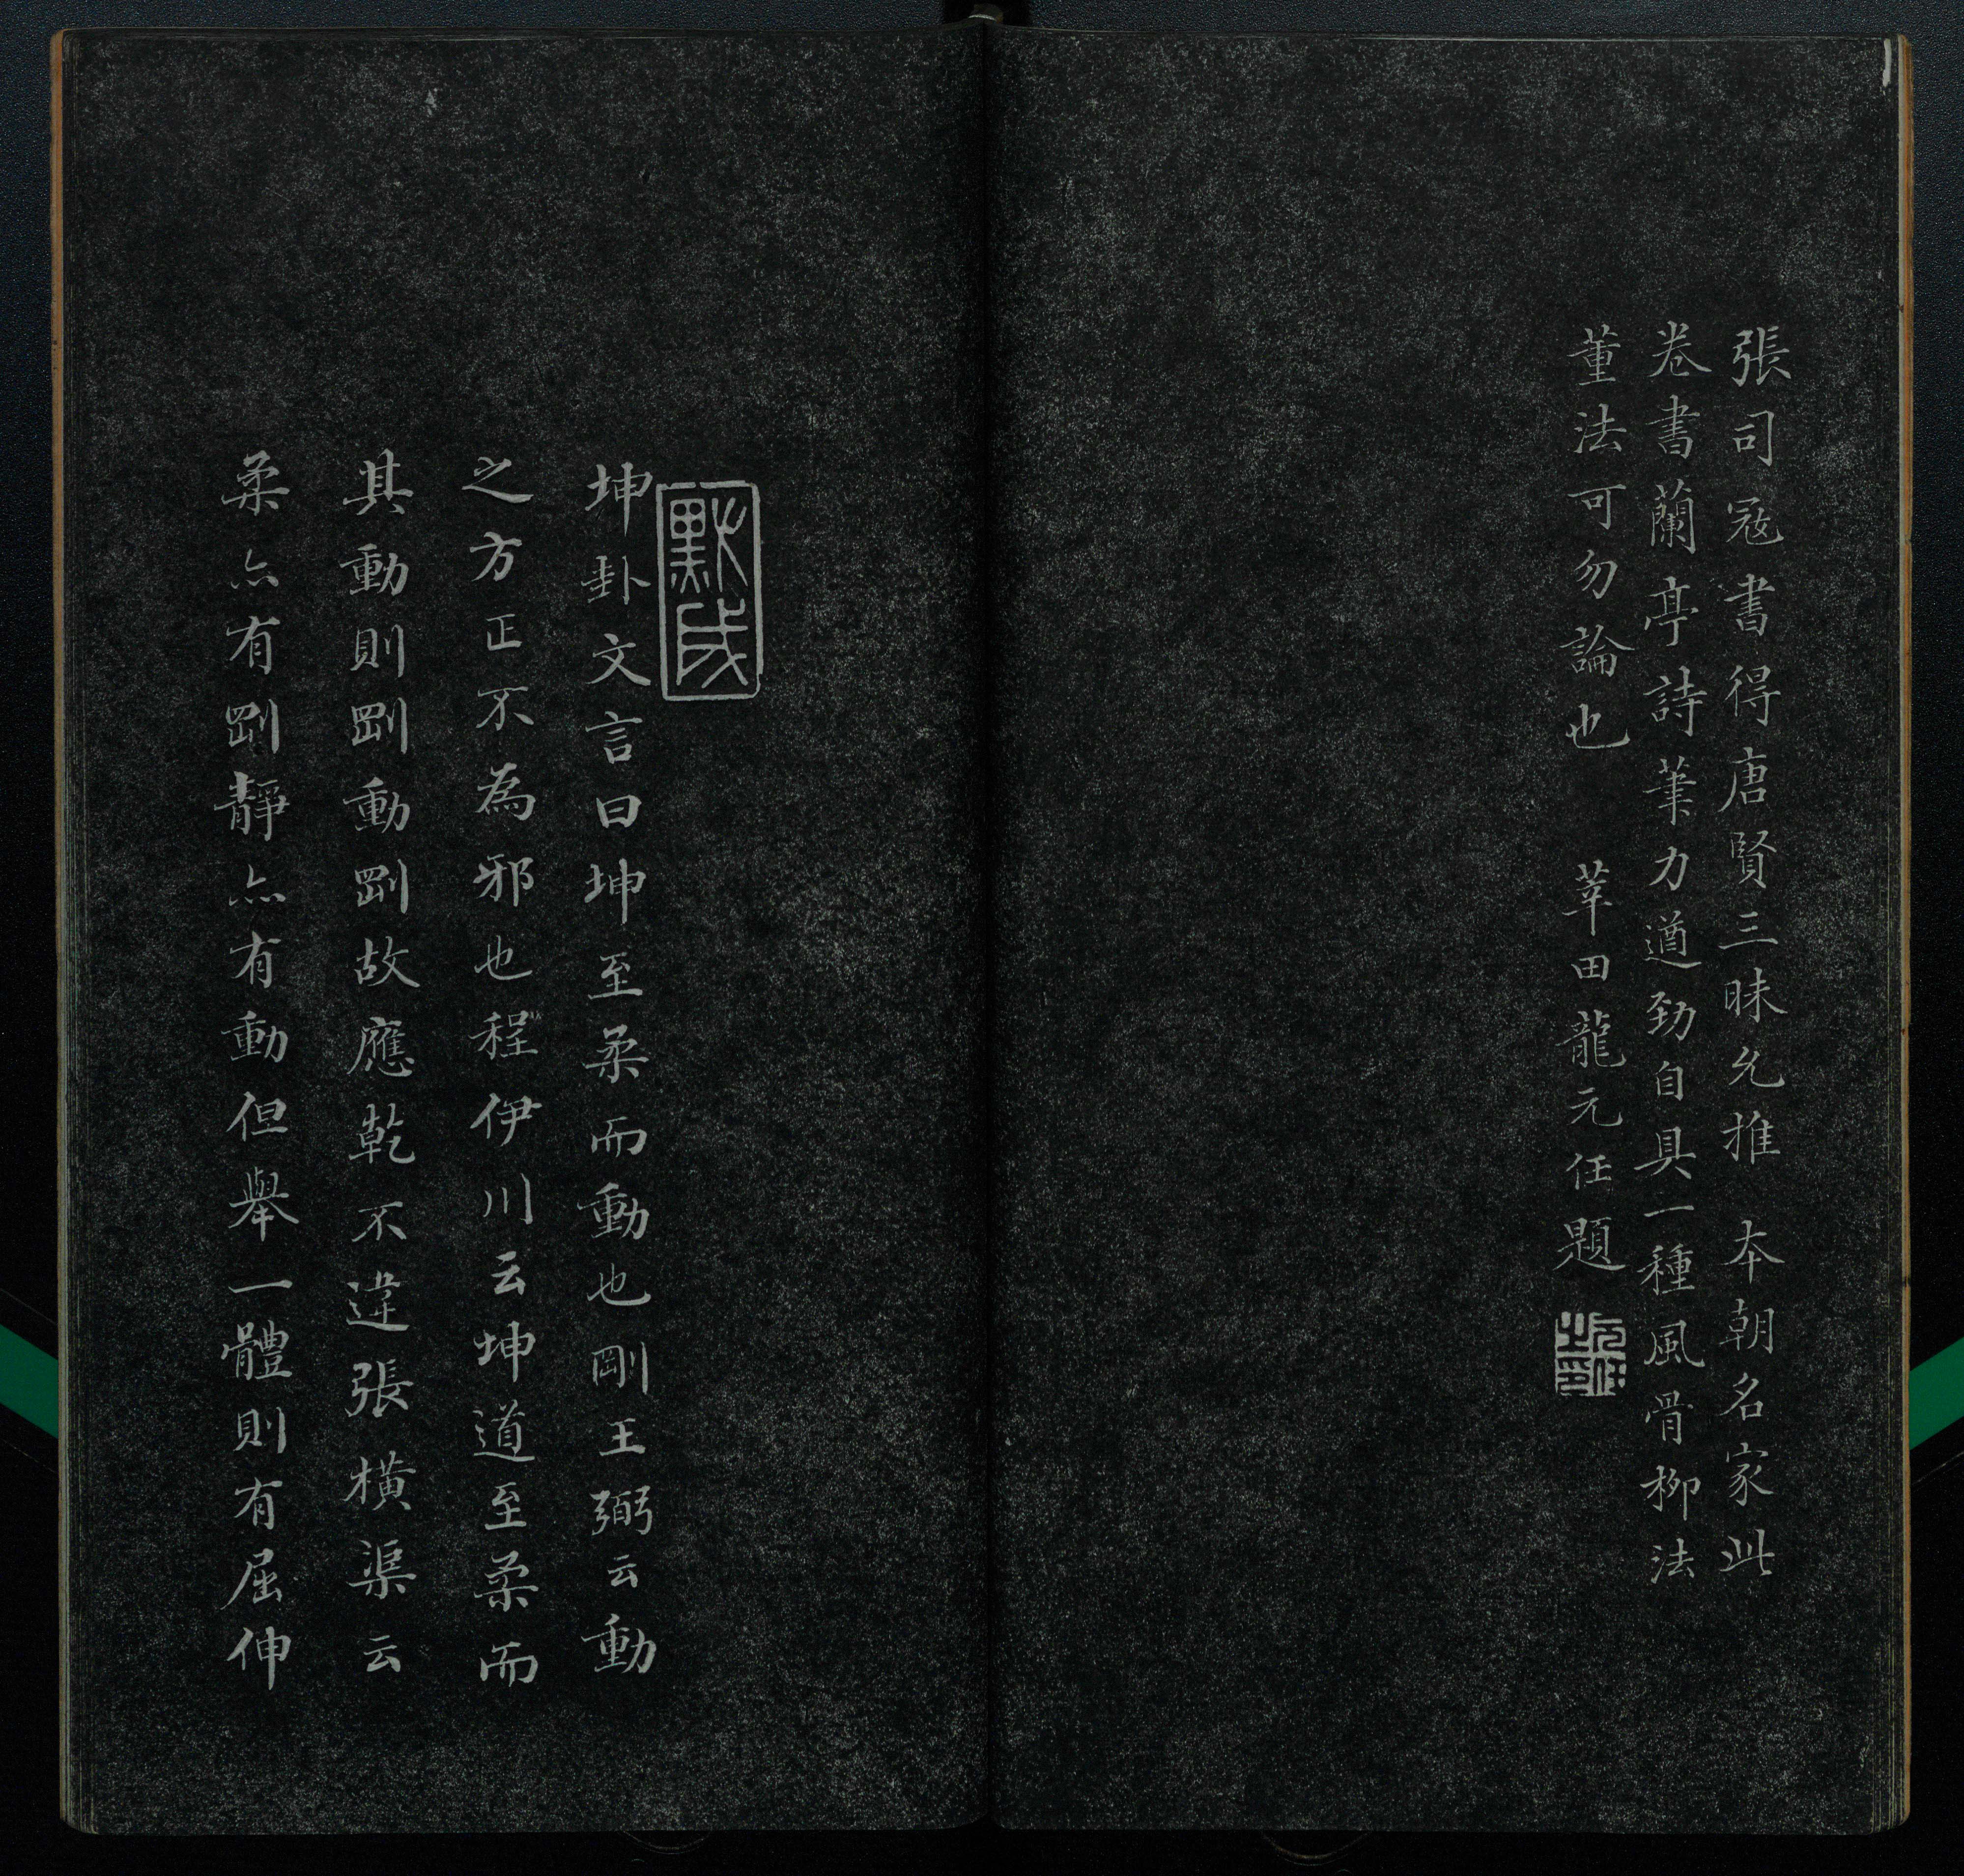 張司寇書得唐賢三昧允推 本朝名家此
卷書蘭亭詩筆力遒勁自具一種風骨柳法
董法可勿論也 莘田龍元任題
元任之印
默成
坤卦文言曰坤至柔而動也剛王弼云動
之方正不為邪也程伊川云坤道至柔而
其動則剛動剛故應乾不違張橫渠云
柔亦有剛靜亦有動但舉一體則有屈伸